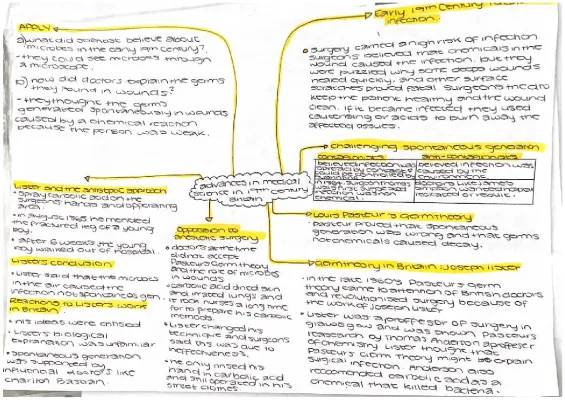 APPLY
a) what did scientist believe about
microbes in the early 19th century?
- they could see microbes through
a microscope.
b) how did doctors explain the germs
they found in wounds?
- they thought the germs
generated spontaneously in wounds
caused by a chemical reaction
because the person was weak.
Early 19th Century:
infection.
• Surgery carried a high risk of infection
surgeons believed that chemicals in the
wound caused the infection, but they
were puzzled why some deep wounds
healed quickly, and other surface
scratches proved fatal. Surgeons tried to
keep the patient healthy and the wound
clean. If it became infected they used
cauterising or acids to burn away the
affecting issues.
challenging spontaneous generation
contagionists
anti-contagionists
believed infection was
believed infection was
caused by the
environment.
chemical.
advances in medical
science in 19th century
Britain
Lister and the antiseptic approach
• Spray carbolic acid on the
surgeons hands and operating
area.
• in August 1865 he mended
the fractured leg of a young
boy.
• after 6 weeks the young
boy walked out of hospital.
Listers conclusion
• Lister said that the microbes
in the air caused the
infection not spontaneous gen.
Reactions to Listers work
in Britain
• his ideas were critised
• Listers biological
explanation was unfamiliar
• spontaneous generation
was supported by
influential doctors like
charlton Bastian.
Opposition to
antiseptic surgery
• doctors at the time
did not accept
Pasteurs Germ theory
and the role of microbes
in wounds
• carbolic acid dried skin
and irrated lungs and
it took nurses a long time
for to prepare his carbolic
methods.
• Lister changed his
technique and surgeons
said this was due to
ineffectiveness.
• he only rinsed his
hand in carbolic acid
and still operated in his
street clothes.
Louis Pasteur's Germ theory
• Pasteur proved that spontaneous
generation was wrong and that germs
not chemicals caused decay.
Germ theory in Britain: Joseph Lister
• in the late 1860s Pasteurs Germ
theory came to attention of British doctors
and revoloutionised surgery because of
the work of Joseph Lister
• Lister was a proffesor of surgery in
Glasgow and was shown Pasteurs
research by Thomas Anderson a proffeser
of chemistry. Lister thought that
Pasteurs Germ Theory might explain
surgical infection. Anderson also
recomended carbolic acid as a
chemical that killed bacteria.